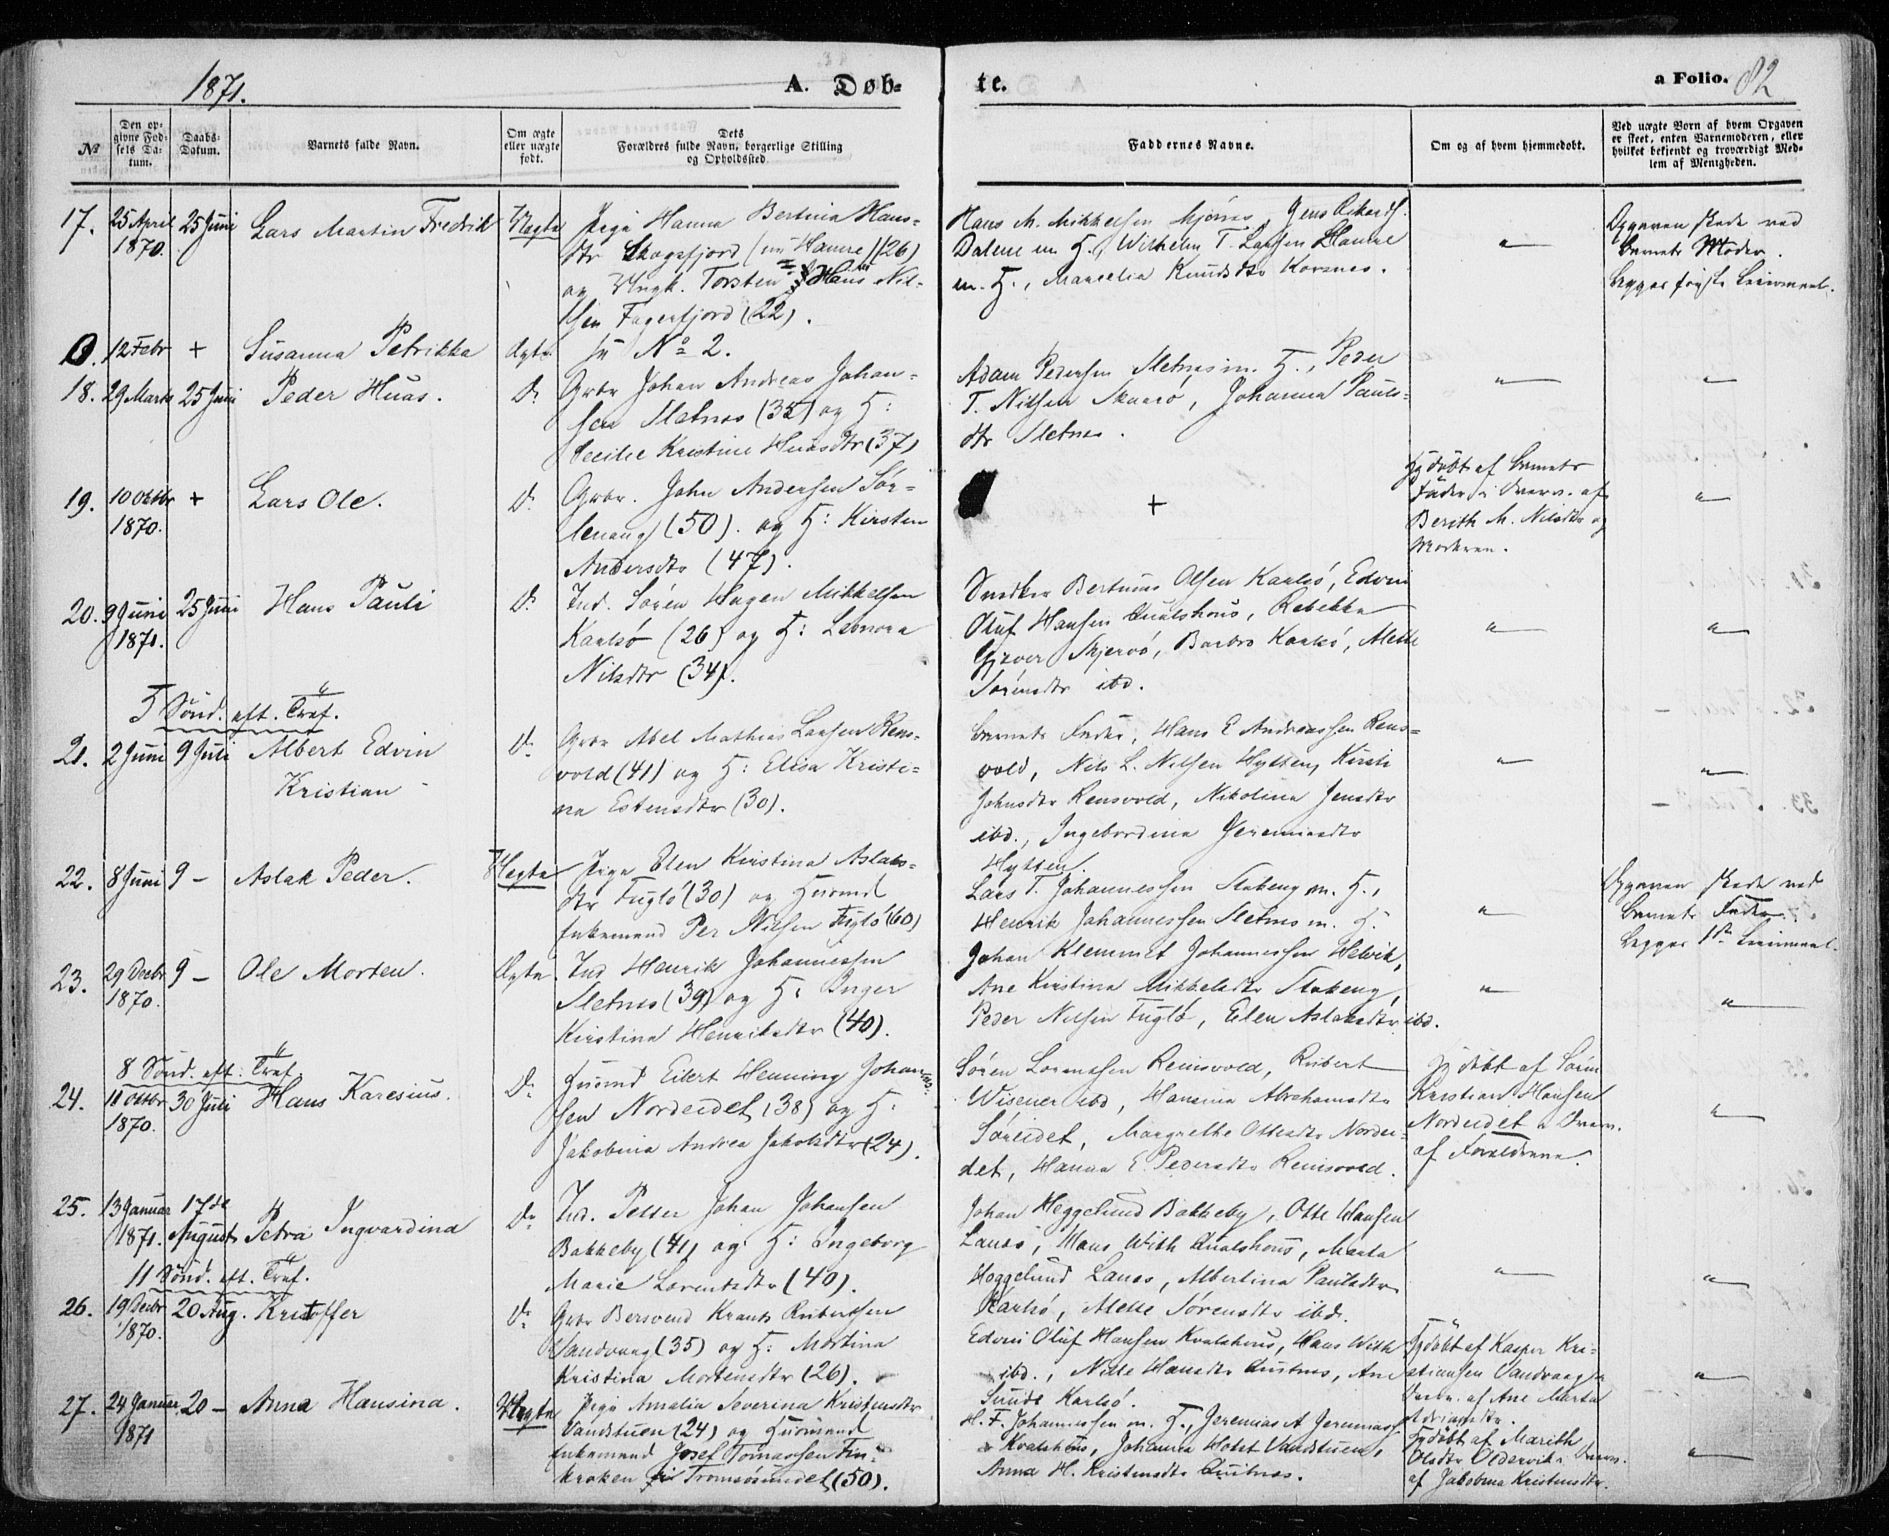 1871.
A. Døb-
te.
a Folio. 82
№
Den op-
givne Fød-
sels Da-
tum.
Daabs-
Datum.
Barnets fulde Navn.
Om ægte
eller uægte
født.
Dets
Forældres fulde Navn, borgerlige Stilling
og Opholdssted
Faddernes Navne.
Om og af hvem hjemmedøbt.
Ved uægte Børn af hvem Opgaven
er skeet, enten Barnemoderen, eller
hvilket bekjendt og troværdigt Med-
lem af Menigheden.
17. 25 April
1870.
25 Juni
Lars Martin Fredrik
Uægte
Pige Hanna Bertina Hans-
dtr Skogsfjord (26)
og Ungk. Torsten Hans Nil-
sen Fagerfjord (22).
Hans M. Mikkelsen Mjørnes, Jens
Dalene m. H., Wilhelm T. Larsen Hamre
m. H., Marselia Knudsdtr Korsnes.
"
Opgaven skede ved
Barnets Moder.
Begges første Leiermaal.
0. 12 Febr
+
Susanna Petrikka
ægte
No 2.
18. 29 Marts
25 Juni
Peder Huas.
Do
Grbr Johan Andreas Johan-
sen Sletnes (35) og H:
Cecilie Kristine Huasdtr (37)
Adam Pedersen Sletnes m. H., Peder
T. Nilsen Skaarø, Johanna Pauls-
dtr Sletnes.
"
"
19. 10 Oktbr
1870.
+
Lars Ole.
Do
Grbr. John Andersen Sør-
lenang (50). og H: Kirsten
Andersdtr (47).
+
Hjdøbt af Barnets
Fader i Overv. af
Berith M. Nilsdtr og
Moderen.
"
20. 9 Juni
1871.
25 Juni
Hans Pauli
Do
Ind. Søren Hagen Mikkelsen
Karlsø (26) og H: Leonora
Nilsdtr (34).
Snedker Bertinus Olsen Karlsø, Edvin
Oluf Hansen Qualshous, Rebekka
Gjæver Skjervø, Barbro Karlsø, Mette
Sørensdtr ibd.
"
"
5 Sønd. eft. Tref.
21. 2 Juni
9 Juli
Albert Edvin
Kristian
Do
Grbr Abel Mathias Larsen Rens-
vold (41) og H: Elisa Kristi-
na Estensdtr (30).
Barnets Fader, Hans E Andreassen Rens-
vold, Nils L. Nilsen Hytten, Kirsti
Johnsdtr Rensvold, Nikolina Jensdtr
ibd., Ingebordina Jeremiasdtr
Hytten.
"
"
22. 8 Juni
9 –
Aslak Peder.
Uægte
Pige Elen Kirstina Aslaks-
dtr Fuglø (30) og Husmd
Enkemand Per Nilsen Fuglø (60)
Lars T. Johannessen Stakeng m. H.,
Henrik Johannessen Sletnes m. H.
"
Opgaven skede ved
Barnets Fader.
Begges 1ste Leiermaal.
23. 29 Decbr
1870.
9 –
Ole Morten.
Ægte
Ind Henrik Johannessen
Sletnes (39) og H: Inger
Kirstina Henriksdtr (40).
Johan Klemmet Johannessen Helvik,
Ane Kirstina Mikkelsdtr Stakeng,
Peder Nilsen Fuglø, Elen Aslaksdtr ibd.
"
"
8 Sønd. eft. Tref.
24. 11 Oktbr
1870.
30 Juli
Hans Karesius.
Do
Husmd Eilert Henning Johan-
sen Nordeidet (38) og H:
Jakobina Andrea Jakobsdtr (24).
Søren Lorentsen Rensvold, Rubert
ibd, Hansina Abrahamsdtr
Søreidet, Margrethe Ottesdtr Nordei-
det, Hanna E. Pedersdtr Rensvold.
Hjdøbt af Søren
Kristian Hansen
Nordeidet i Overv.
af Forældrene.
"
25. 13 Januar
1871.
17de
August
Petra Ingvardina
Do
Ind. Petter Johan Johansen
Bakkeby (41) og H: Ingeborg
Marie Lorentsdtr (40).
Johan Heggelund Bakkeby, Otte Hansen
Lanes, Hans With Qualshous, Marta
Heggelund Lanes, Albertina Paulsdtr
Karlsø, Mette Sørensdtr ibd.
"
"
11 Sønd. eft. Tref.
26. 19 Decbr
1870.
20 Aug.
Kristoffer
Do
Grbr Bersvend Krants Rubertsen
Sandvaag (35) og H: Mortina
Kristina Mortensdtr (26).
Edvin Oluf Hansen Kvalshous, Hans With
ibd., Nille Hansdtr, Ane
Sunde Karlsø.
Hjdøbt af Kasper Kri-
stiansen Vandvaag i
Overv. af Ane Marta
"
27. 24 Januar
1871
20 –
Anna Hansina.
Uægte
Pige Amalia Severina Kristensdtr
Vandstuen (24) og Husmand
Enkemand Josef Tomassen Fin-
kroken i Tromsøsundet (50).
H. F. Johannessen m. H., Jeremias A Jeremias
Kvalshous, Johanna Holst Vandstuen,
Anna H. Kristensdtr.
Hjdøbt af Marith
Olsdtr Oldervik i Overv.
af Jakobina Kristensdtr.
"